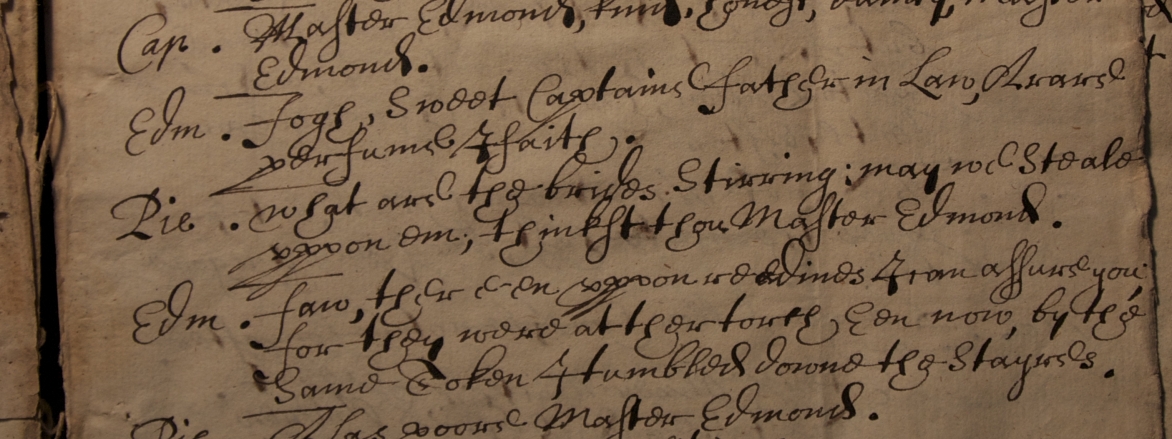 Cap. Master Edmond, kind, honest, Master
Edmond.
Edm. Fogh, Sweet Captaine Father in Law, A rare
perfume I faith.
Pie. what are the brides Stirring; may we Steale
vppon em; thinkst thou Master Edmond.
Edm. faw, ther e'en vppon reedines I can assure you;
for they were at ther torch, Een now, by the
Same Token I tumbled downe the Stayres.
Pie. Alas poore Master Edmond.